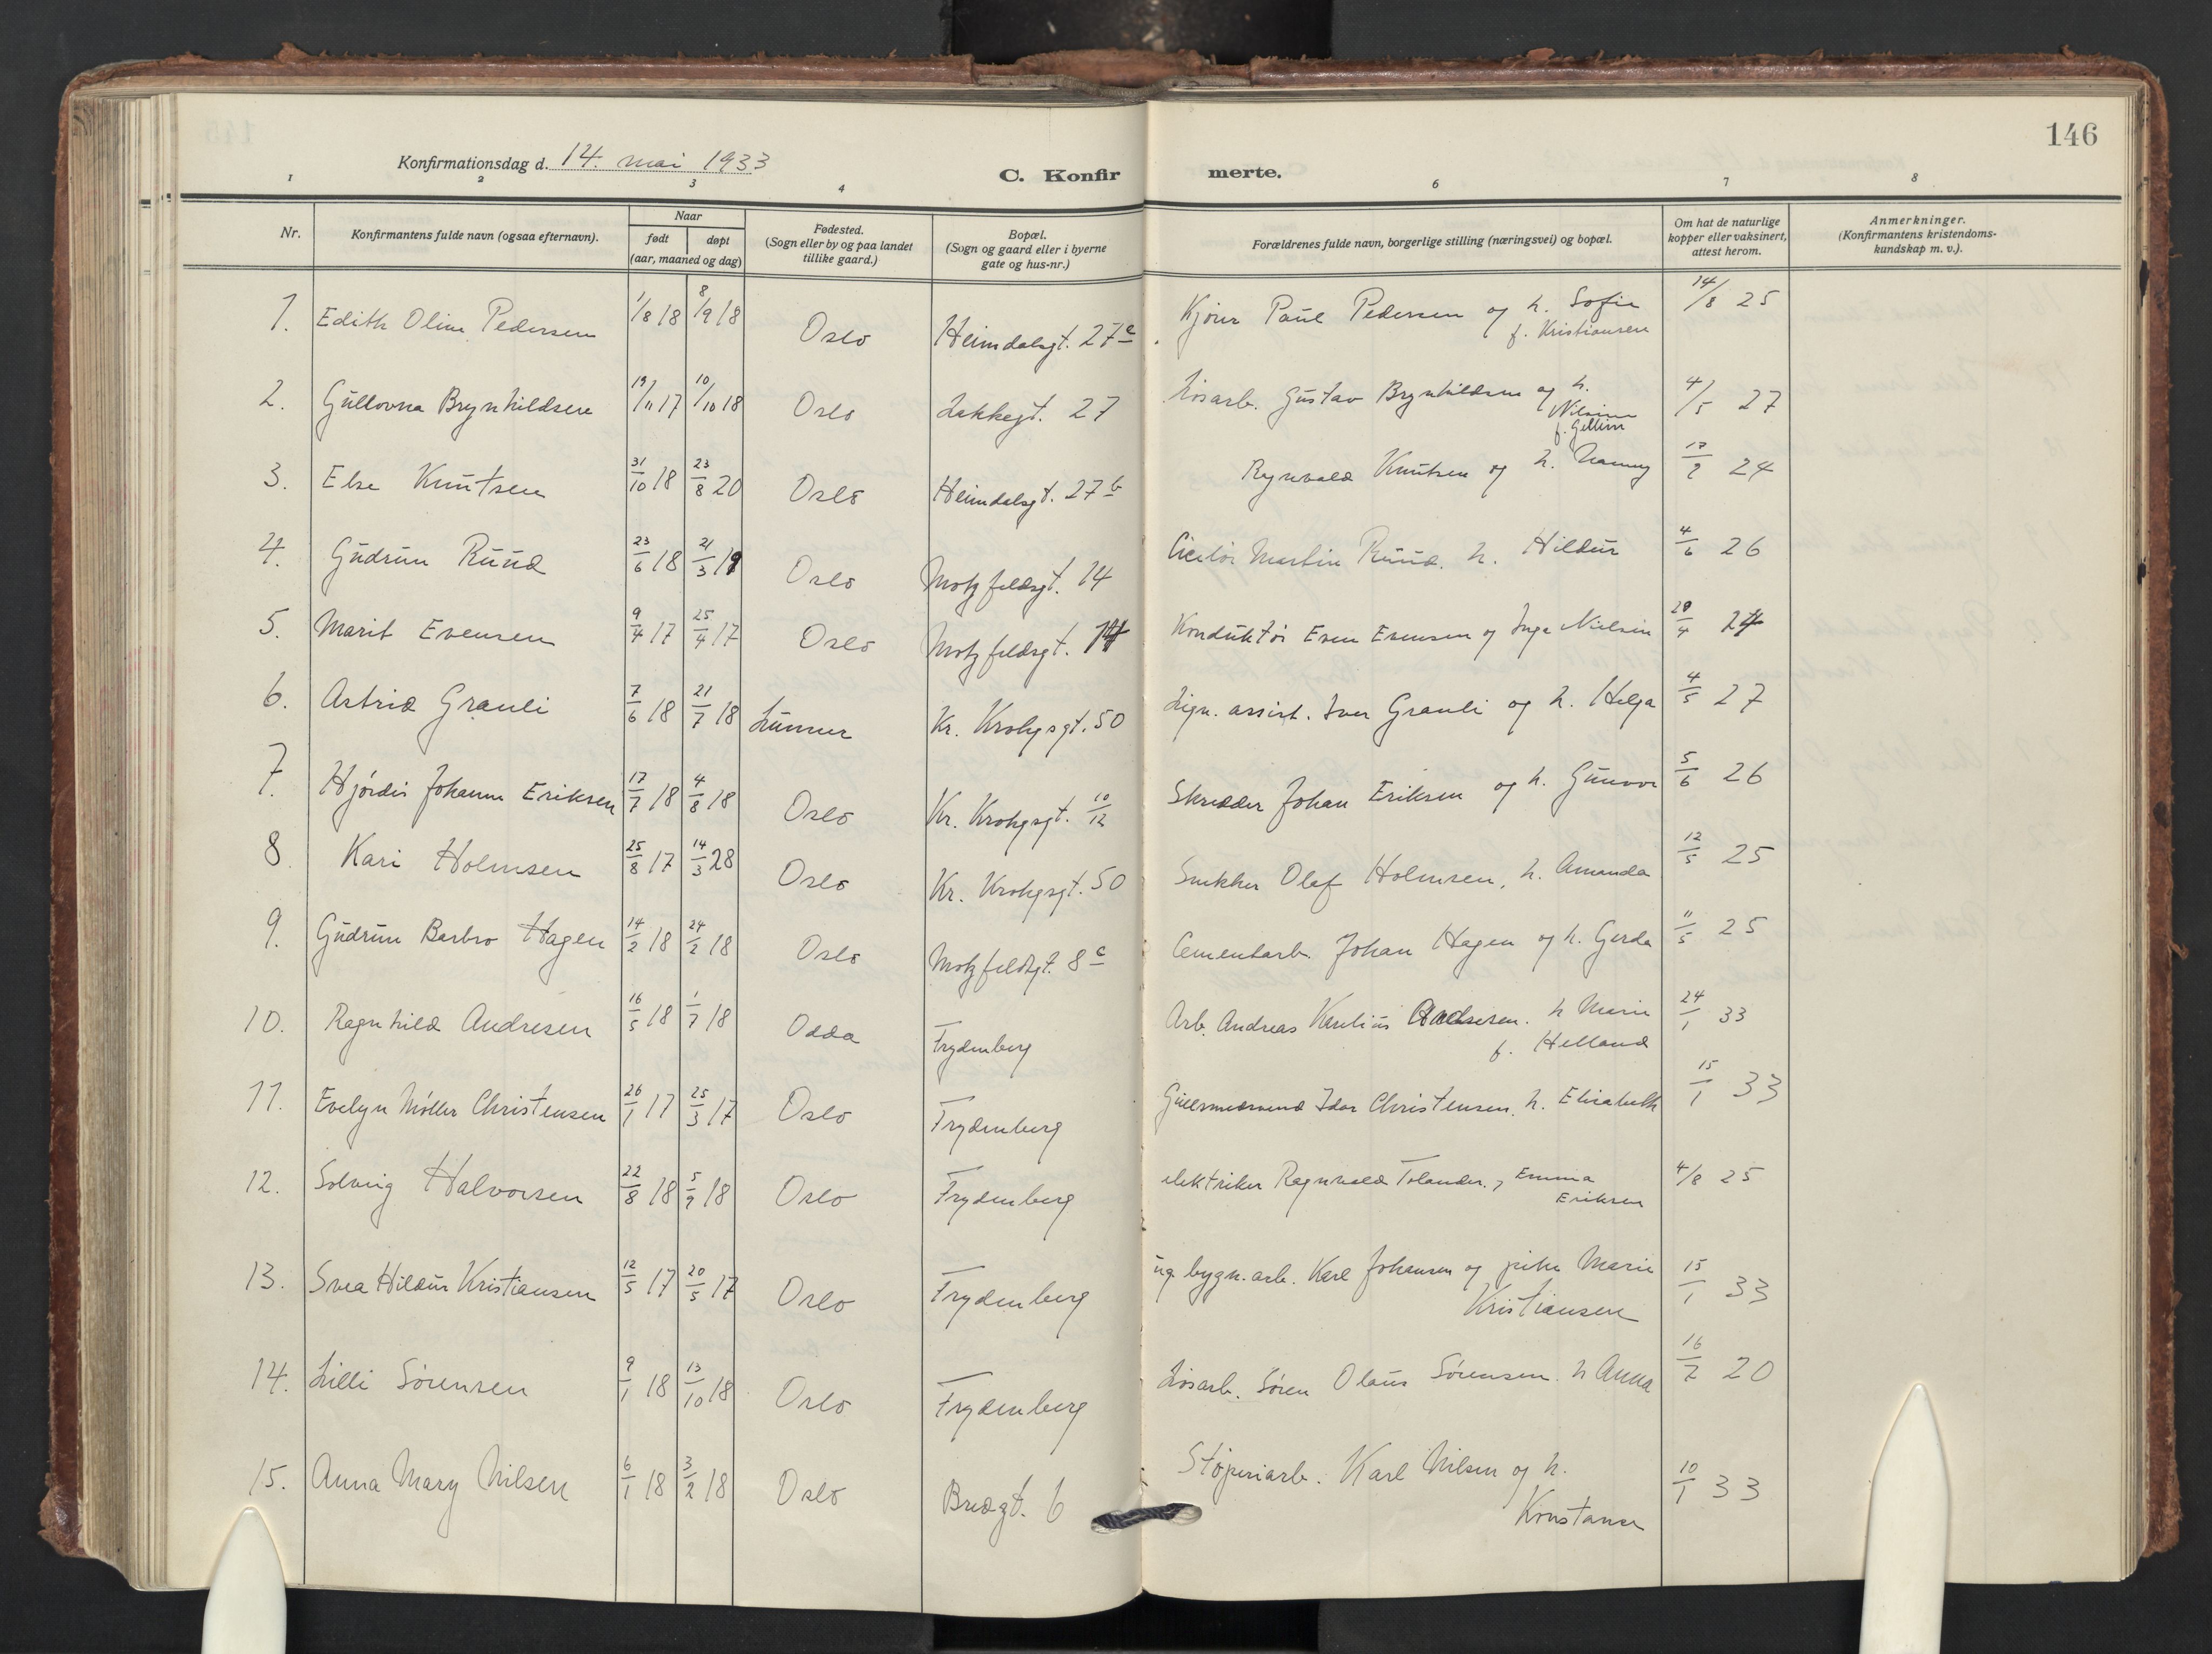 146
Konfirmationsdag d. 14. mai 1933
C. Konfir merte.
1 2 3 4 6 7 8
Nr.
Konfirmantens fulde navn (ogsaa efternavn).
Naar
født døpt
(aar, maaned og dag)
Fødested.
(Sogn eller by og paa landet
tillike gaard.)
Bopæl.
(Sogn og gaard eller i byerne
gate og hus-nr.)
Forældrenes fulde navn, borgerlige stilling (næringsvei) og bopæl.
Om hat de naturlige
kopper eller vaksinert,
attest herom.
Anmerkninger.
(Konfirmantens kristendoms-
kundskap m. v.).
1. Edith Oline Pedersen 1/8 18 8/9 18 Oslo Heimdalsgt. 27c Kjører Paul Pedersen og h. Sofie 14/8 25
f. Kristiansen
2. Gullovna Brynhildsen 19/11 17 10/10 18 Oslo Lakkegt. 27 Løsarb. Gustav Brynhildsen og h. 4/5 27
3. Else Knutsen 31/10 18 23/8 20 Oslo Heimdalsgt. 27b Ragnvald Knutsen og h. Nanny 24
4. Gudrun Ruud 23/6 18 21/3 19 Oslo Motzfeldsgt. 14 Martin Ruud. h. Hildur 4/6 26
5. Marit Evensen 9/4 17 25/4 17 Oslo Motzfeldsgt. 14 Konduktør Even Evensen og Inga Nielsen 24
6. Astrid Grauli 7/6 18 21/7 18 Lunner Kr. Krohgsgt. 50 Lign. assist. Iver Grauli og h. Helga 4/5 27
7. Hjørdis Johanne Eriksen 17/7 18 4/8 18 Oslo Kr. Krohgsgt. 10/12 Skredder Johan Eriksen og h. Gunvor 5/6 26
8. Kari Holmsen 25/8 17 14/3 28 Oslo Kr. Krohgsgt. 50 Snekker Olaf Holmsen, h. Amanda 12/5 25
9. Gudrun Barbro Hagen 14/2 18 24/2 18 Oslo Motzfeldtgt. 8c Cementarb. Johan Hagen og h. Gerda 11/5 25
10. Ragnhild Andresen 16/5 18 1/7 18 Odda Frydenberg Arb. Andreas Karelius Andresen. h Marie 24/1 33
f. Helland
11. Evelyn Møller Christensen 26/1 17 25/3 17 Oslo Frydenberg Gullsmedsvend Idar Christensen, h. Elisabeth 15/1 33
12. Solveig Halvorsen 22/8 18 5/9 18 Oslo Frydenberg elektriker Ragnvald Tolander, Emma 4/8 25
Eriksen
13. Svea Hildur Kristiansen 12/5 17 20/5 17 Oslo Frydenberg ug. bygn. arb. Karl Johansen og pike Marie 15/1 33
Kristiansen
14. Lilli Sørensen 9/1 18 13/10 18 Oslo Frydenberg Løsarb. Søren Olaus Sørensen. h Anna 16/7 20
15. Anna Mary Nilsen 6/1 18 3/2 18 Oslo Bredgt. 6 Støperiarb. Karl Nilsen og h. 10/1 33
Konstanse